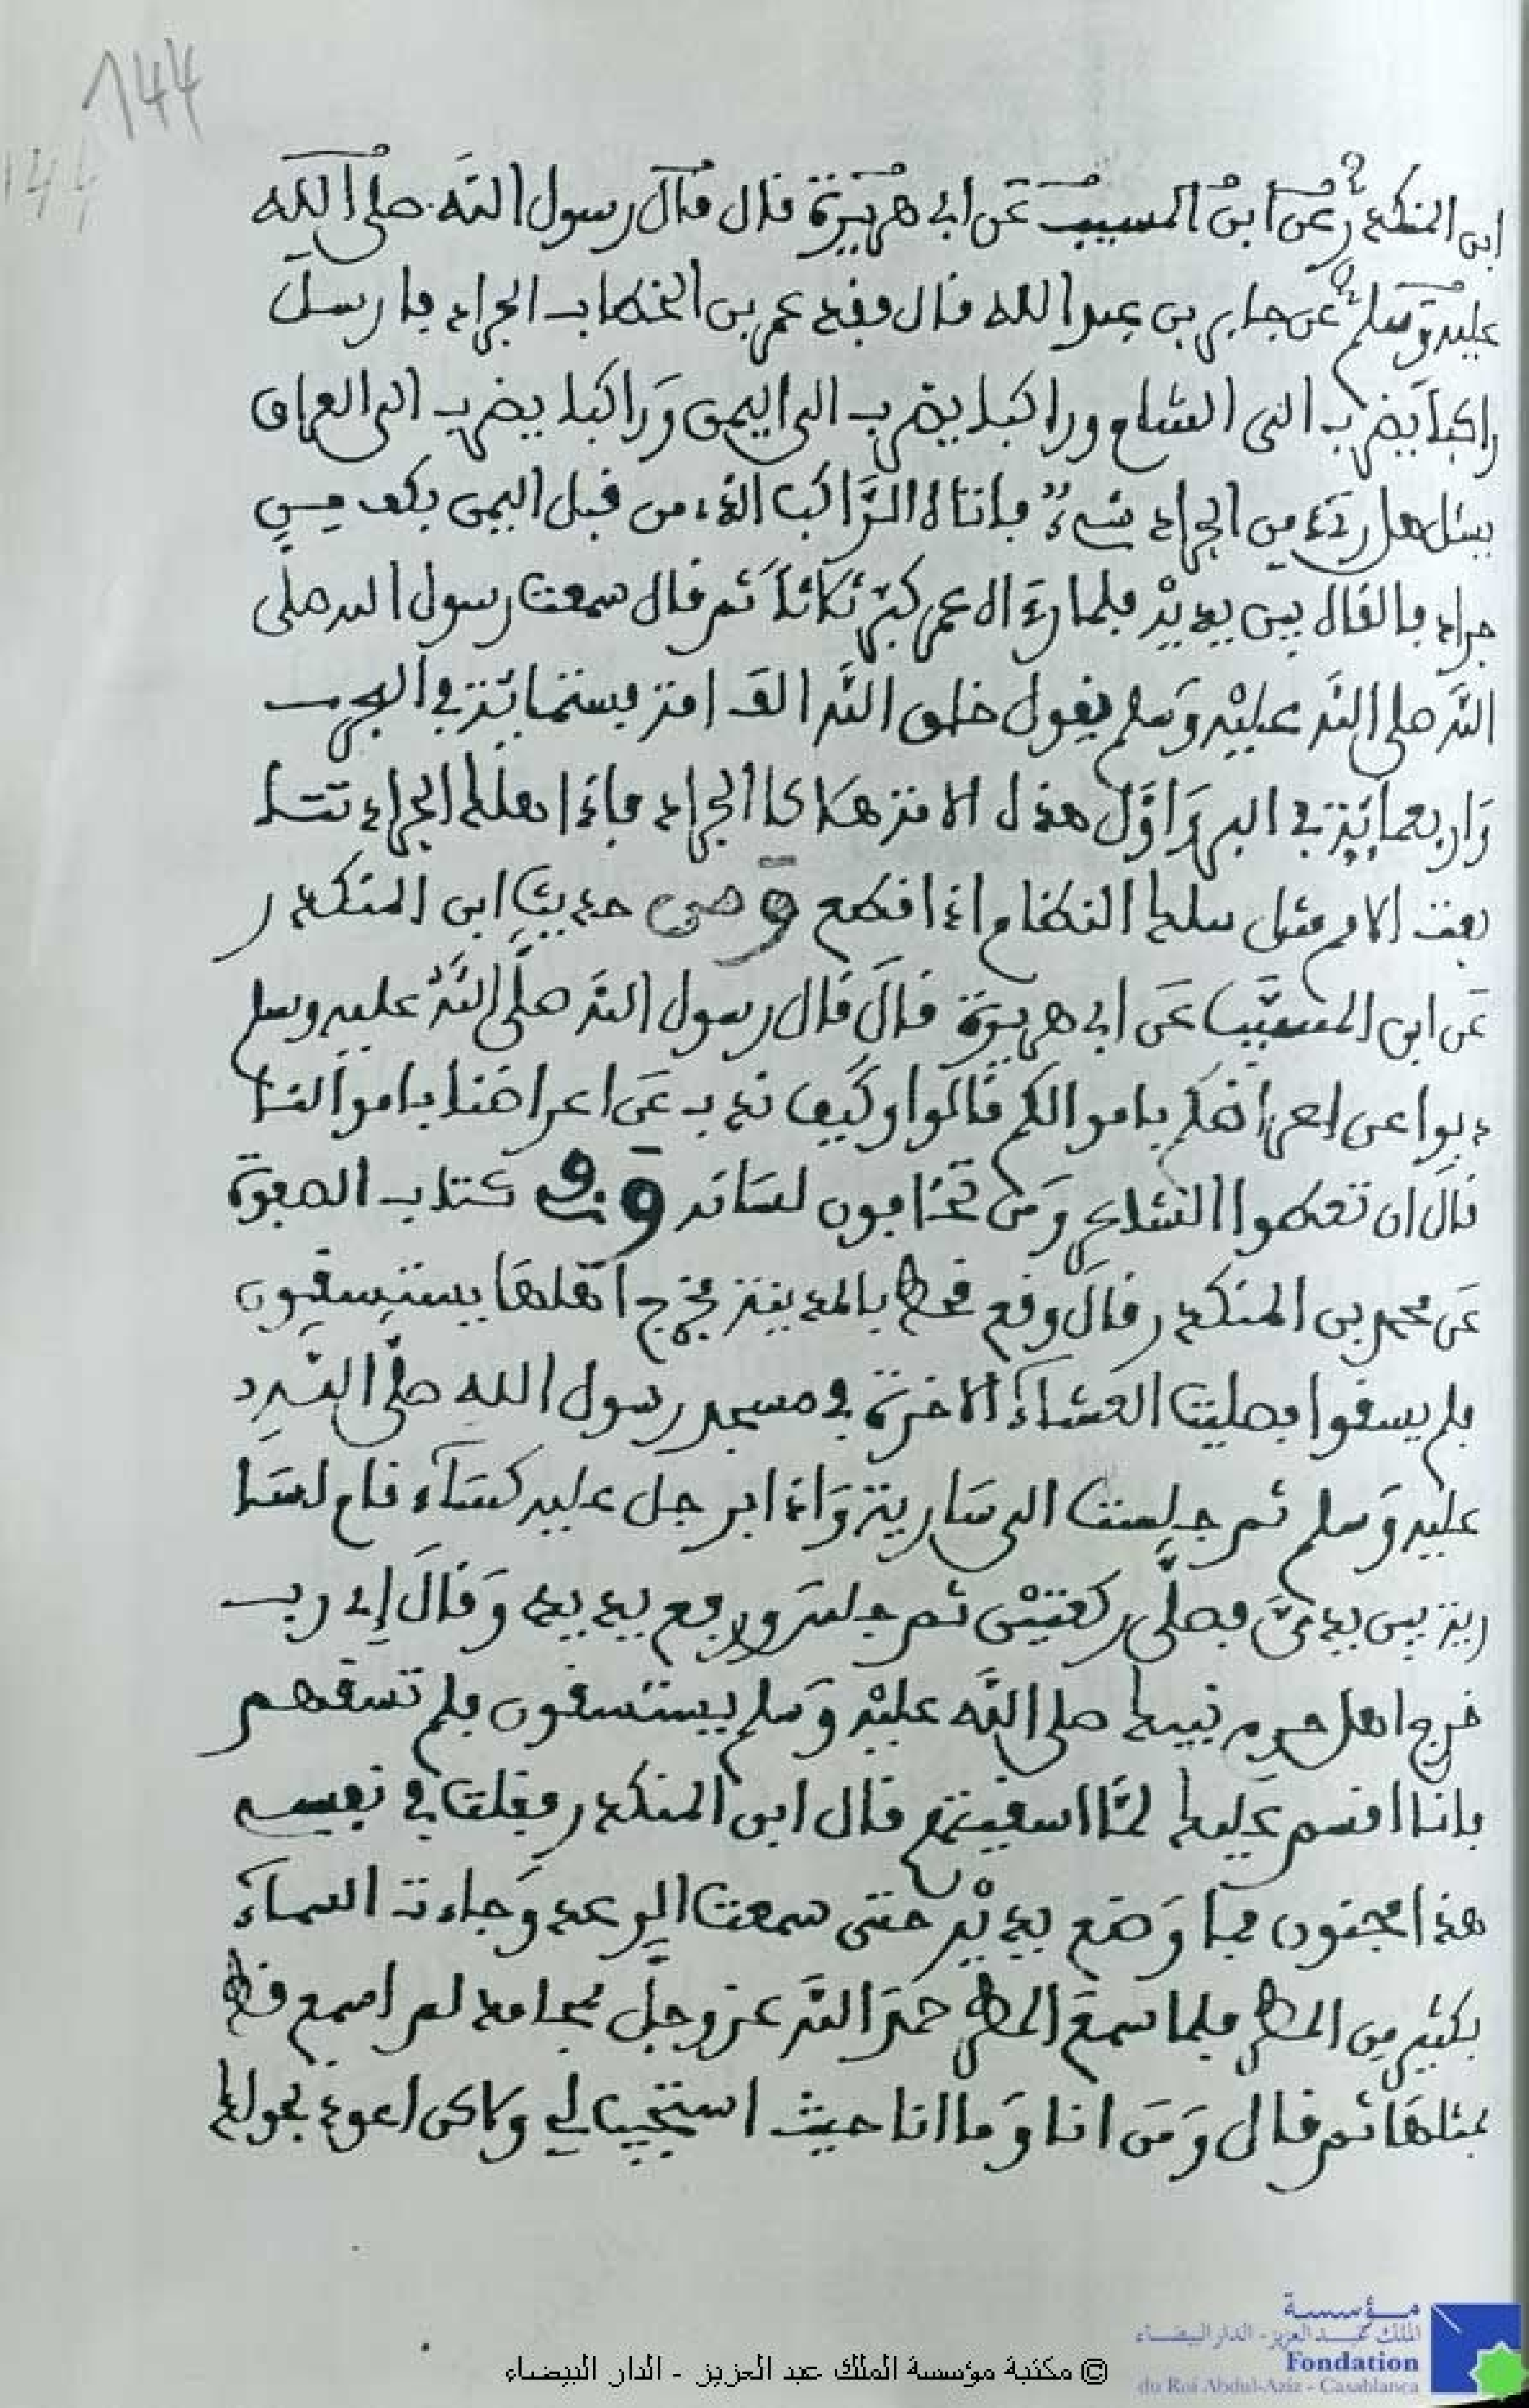 144
144
ابن المنكدر عن ابن المسيب عن ابي هريرة قال قال رسول الله صلى الله
عليه وسلم عن جابر بن عبد الله قال وفقد عمر بن الخطاب الجراد فارسل
راكبا يضرب الى الشام وراكبا يضرب الى اليمن وراكبا يضرب الى العراق
يسئل هل رءي من الجراد شيء فاتاه الراكب الذي من قبل اليمن بكف من
جراد فالقاه بين يديه فلما رءاه عمر كبر ثلاثا ثم قال سمعت رسول الله صلى
الله صلى الله عليه وسلم يقول خلق الله الف امة ستمائة في البحر
واربعمائة في البر واول هذه الامة هلاكا الجراد فاذا هلك الجراد تتا
بعت الامم مثل سلك النظام اذا انقطع ومن حديث ابن المنكدر
عن ابن المسيب عن ابي هريرة قال قال رسول الله صلى الله عليه وسلم
دبوا عن اعراضكم باموالكم قالوا وكيف ندب عن اعراضنا باموالنا
قال ان تعطوا الشاعر ومن تخافون لسانه وفي كتاب الصفوة
عن محمد بن المنكدر قال وقع قحط بالمدينة فخرج اهلها يستسقون
فلم يسقوا فصليت العشاء الاخرة في مسجد رسول الله صلى الله
عليه وسلم ثم جلست الى سارية واذا برجل عليه كساء قام لسا
رية بين يدي فصلى ركعتين ثم جلس ورفع يديه وقال اي رب
خرج اهل حرم نبيك صلى الله عليه وسلم يستسقون فلم تسقهم
فانا اقسم عليك لما اسقيتهم قال ابن المنكدر فقلت في نفسي
هذا مجنون فما وضع يديه حتى سمعت الرعد وجاءت السماء
بكثير من المطر فلما سمع المطر حمد الله عز وجل بمحامد لم اسمع قط
بمثلها ثم قال ومن انا وما انا حيث استجيب لي ولاكن اعوذ بحولك
© مكتبة مؤسسة الملك عبد العزيز - الدار البيضاء
مؤسسة
الملك عبد العزيز - الدار البيضاء
Fondation
du Roi Abdul-Aziz - Casablanca